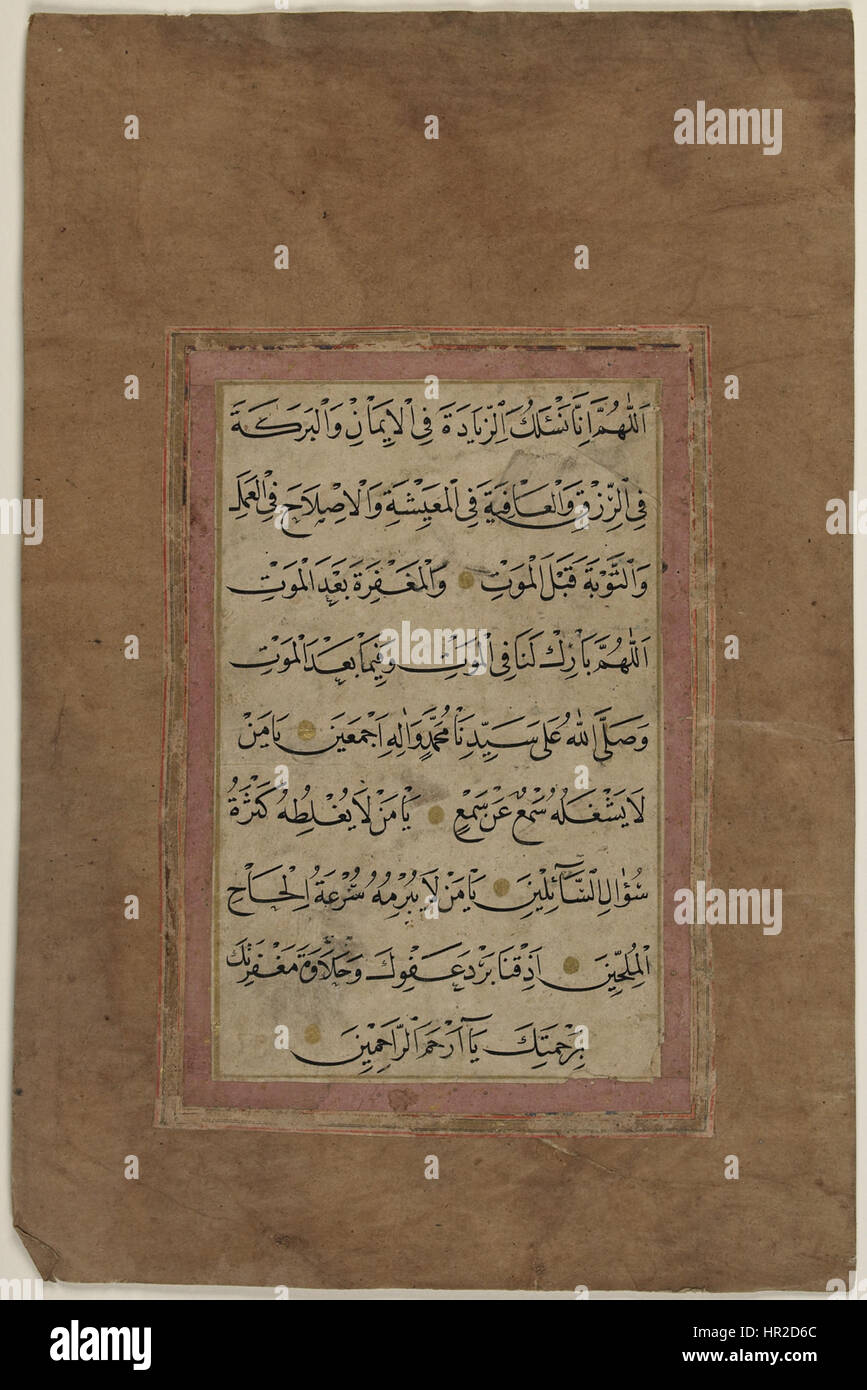 اَللّٰهُمَّ اِنَّا نَسْئَلُكَ الزِّيَادَةَ فِي الْاِيْمَانِ وَالْبَرَكَةَ
فِي الرِّزْقِ وَالْعَافِيَةَ فِي الْمَعِيْشَةِ وَالْاِصْلَاحَ فِي الْعَمَلِ
وَالتَّوْبَةَ قَبْلَ الْمَوْتِ وَالْمَغْفِرَةَ بَعْدَ الْمَوْتِ
اَللّٰهُمَّ بَارِكْ لَنَا فِي الْمَوْتِ وَفِيْمَا بَعْدَ الْمَوْتِ
وَصَلَّى اللّٰهُ عَلٰى سَيِّدِنَا مُحَمَّدٍ وَاٰلِهِ اَجْمَعِيْنَ يَا مَنْ
لَا يَشْغَلُهُ سَمْعٌ عَنْ سَمْعٍ يَا مَنْ لَا يُغْلِطُهُ كَثْرَةُ
سُؤَالِ السَّآئِلِيْنَ يَا مَنْ لَا يُبْرِمُهُ سُرْعَةُ اِلْحَاحِ
الْمُلِحِّيْنَ اَذِقْنَا بَرْدَ عَفْوِكَ وَحَلَاوَةَ مَغْفِرَتِكَ
بِرَحْمَتِكَ يَآ اَرْحَمَ الرَّاحِمِيْنَ
a alamy
alamy
Image ID: HR2D6C
www.alamy.com